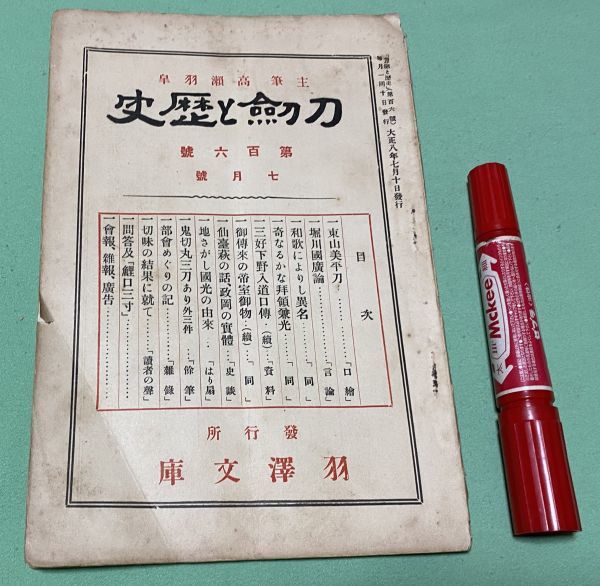 「刀劍と歴史」第百六號
毎月一回十日發行
大正八年七月十日發行
主筆高瀬羽皐
刀劍と歴史
第百六號
七月號
目次
一東山美平刀…「口繪」
一堀川國廣論…「言論」
一和歌によりし異名…「同」
一奇なるかな拜領兼光…「同」
一三好下野入道口傳(續)…「資料」
一御傳來の帝室御物(續)…「同」
一仙臺萩の話、政岡の實體…「史談」
一地さがし國光の由來…「はり扇」
一鬼切丸三刀あり外三件…「餘筆」
一部會めぐりの記…「雜錄」
一切味の結果に就て…「讀者の聲」
一問答及「鯉口三寸」
一會報、雜報、廣告
發行所
羽澤文庫
Mckee
細
太